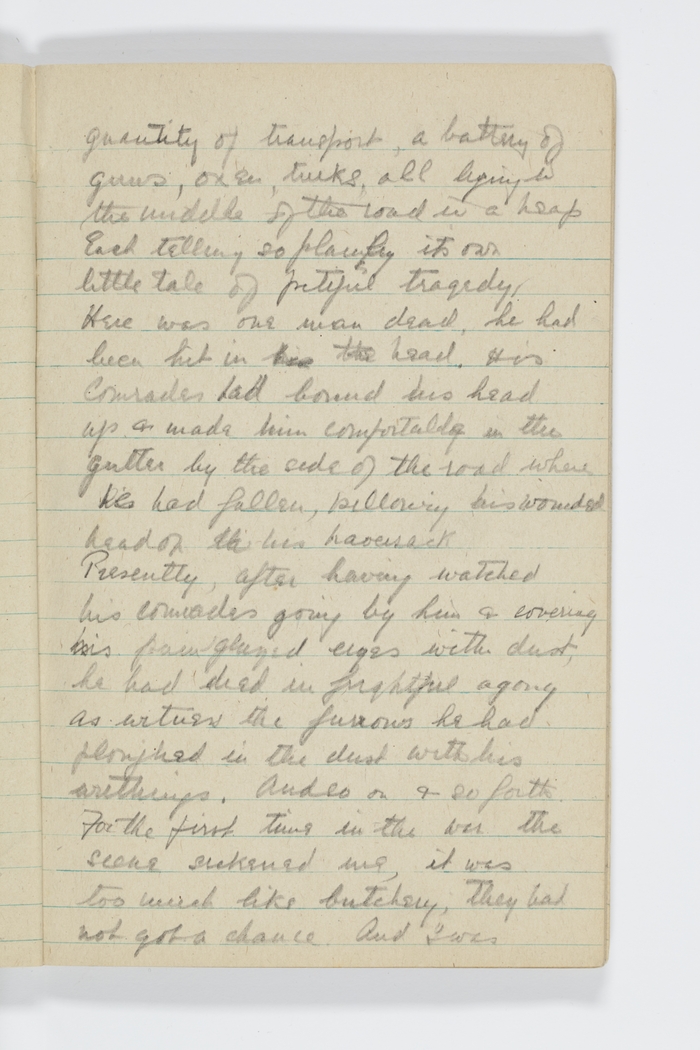 quantity of transport, a battery of
guns, oxen, turks, all lying in
the middle of the road in a heap
Each telling so plainly its own
little tale of pitiful tragedy,
Here was one man dead, he had
been hit in his the head. His
Comrades had bound his head
up & made him comfortable in the
gutter by the side of the road where
he had fallen, pillowing his wounded
head on his haversack
Presently, after having watched
his comrades going by him & covering
his pain glazed eyes with dust,
he had died in frightful agony
as witness the furrows he had
ploughed in the dust with his
writhings. And so on & so forth
For the first time in the war the
scene sickened me, it was
too much like butchery, they had
not got a chance. And I was